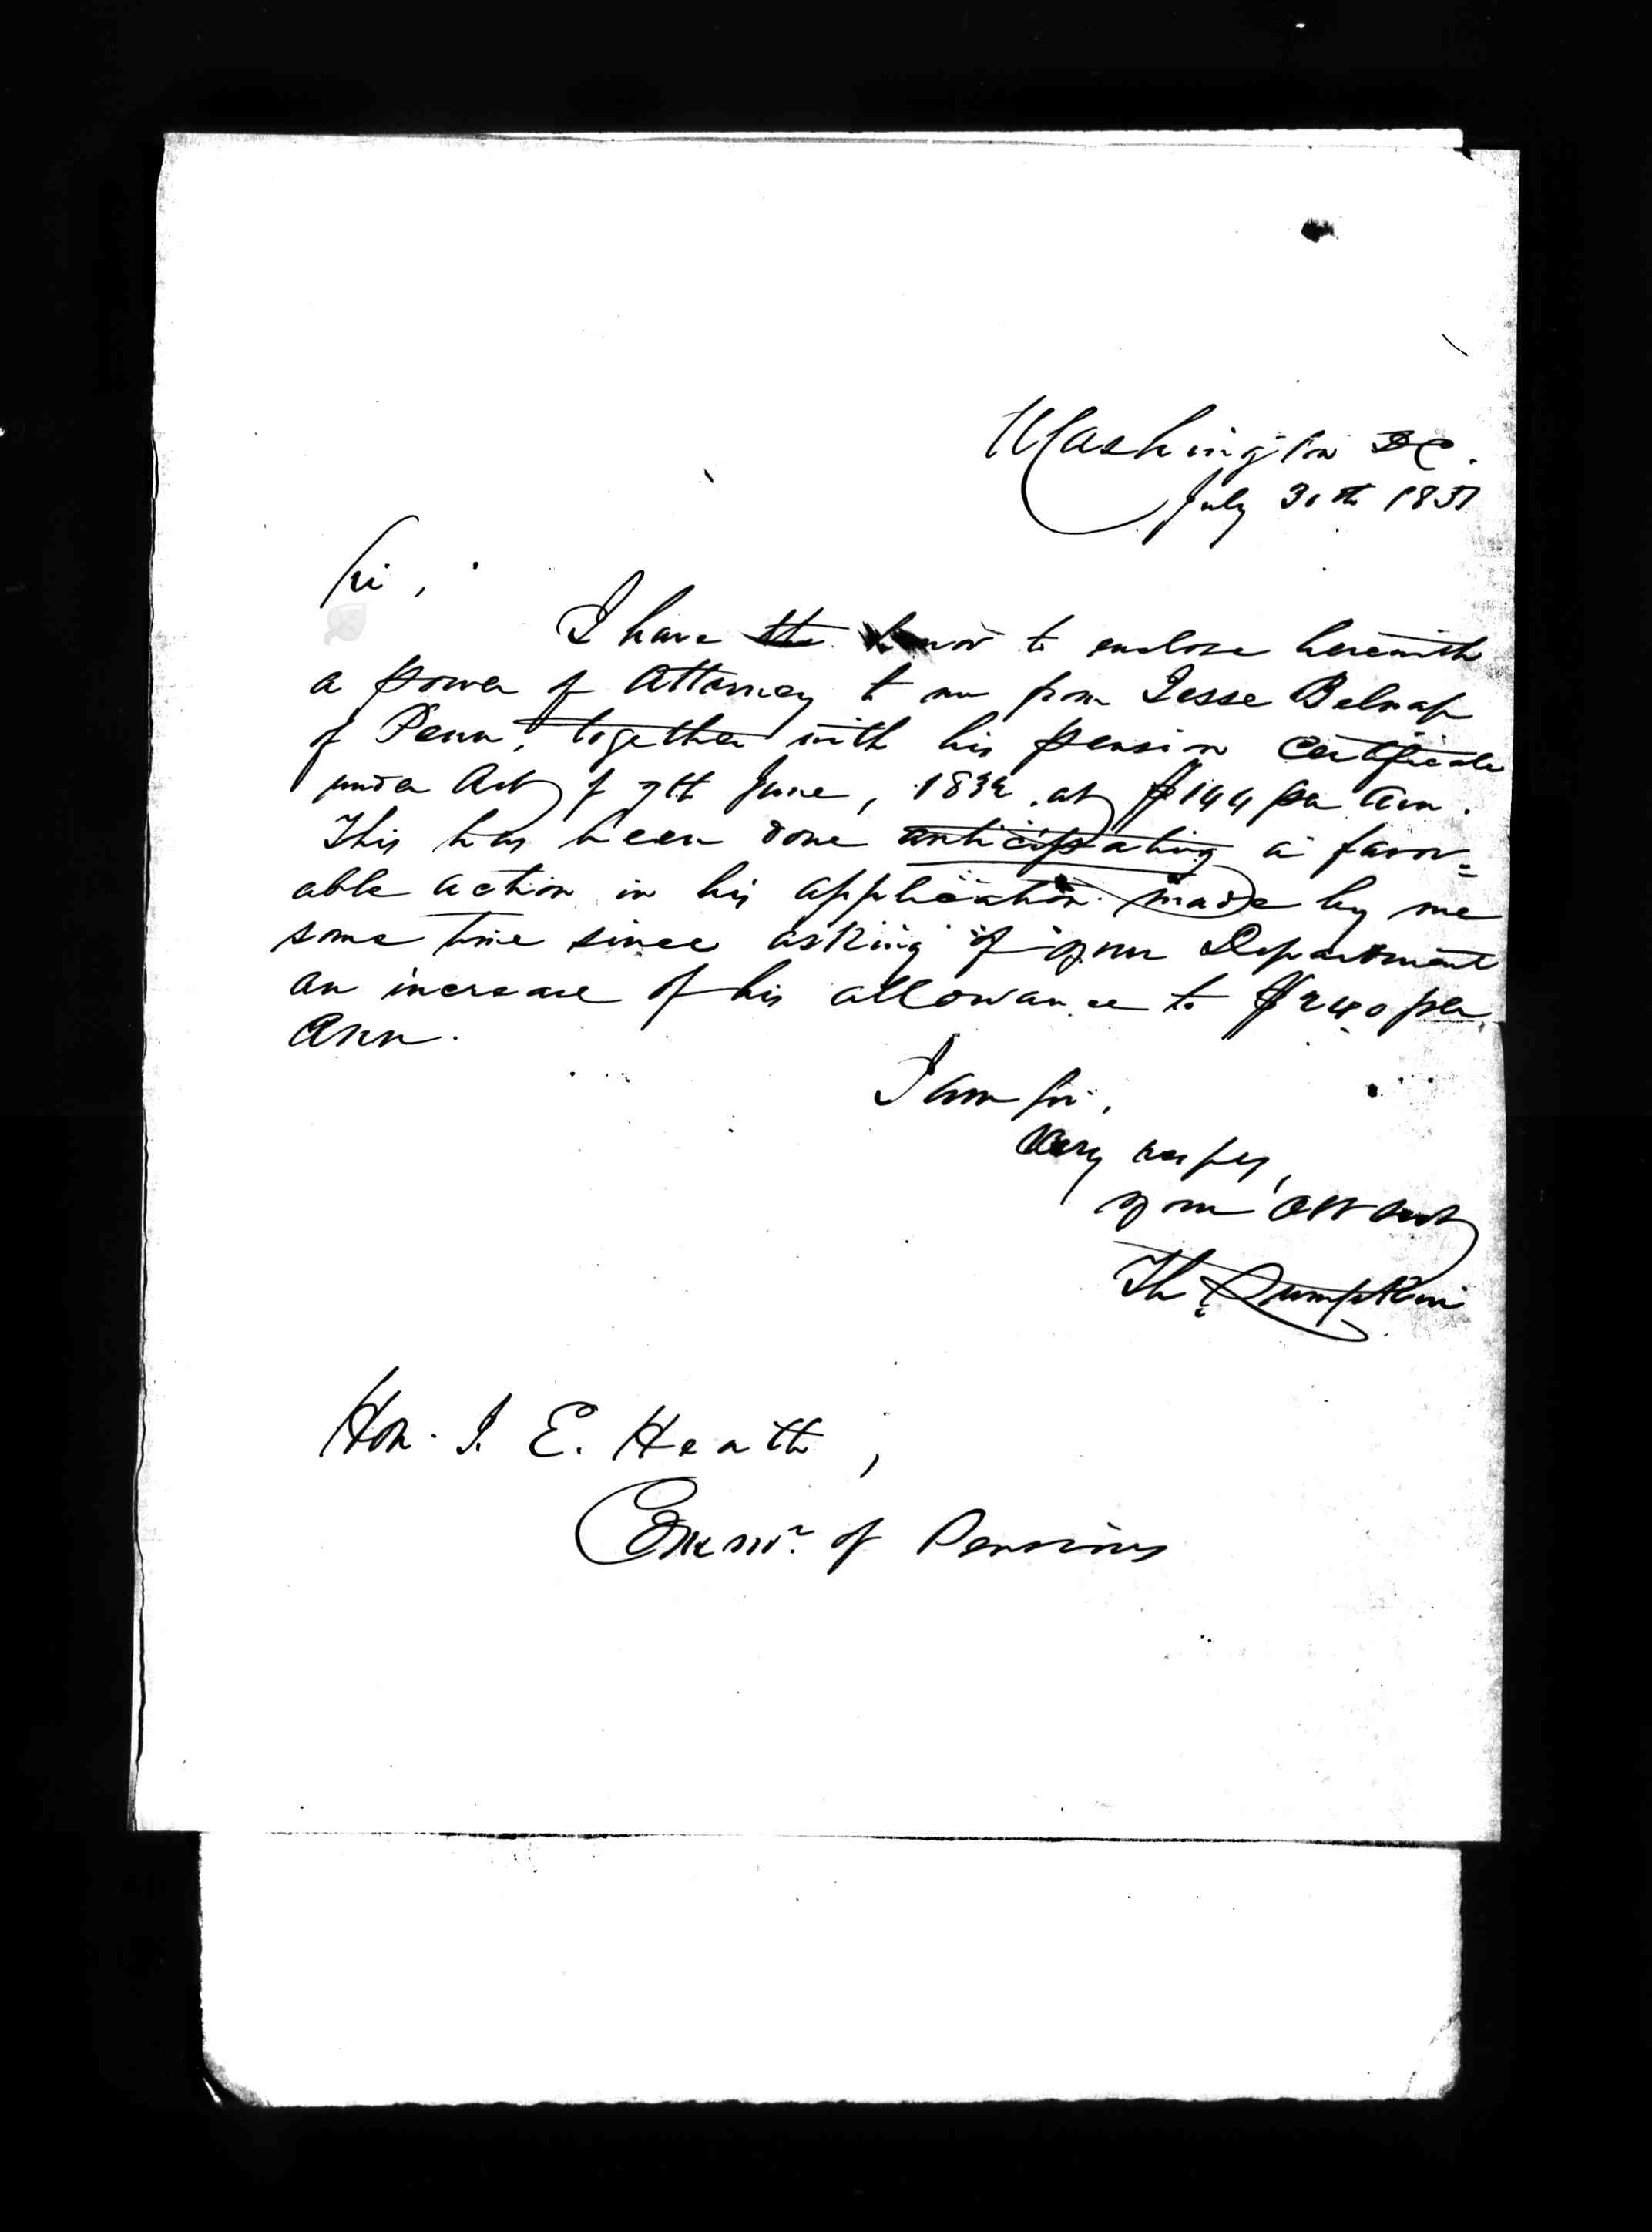 Washington DC.
July 30th 1851
Sir,
I have the honor to enclose herewith
a power of Attorney to me from Jesse Belnap
of Penn, together with his pension certificate
under Act of 7th June, 1832, at $144 per Ann.
This has been done anticipating a favor=
able action in his application made by me
some time since asking of your Department
an increase of his allowance to $240 per
Ann.
I am Sir,
Very respy,
your Obt Servt
Th. Lumpkin
Hon. J. E. Heath,
Commr. of Pensions